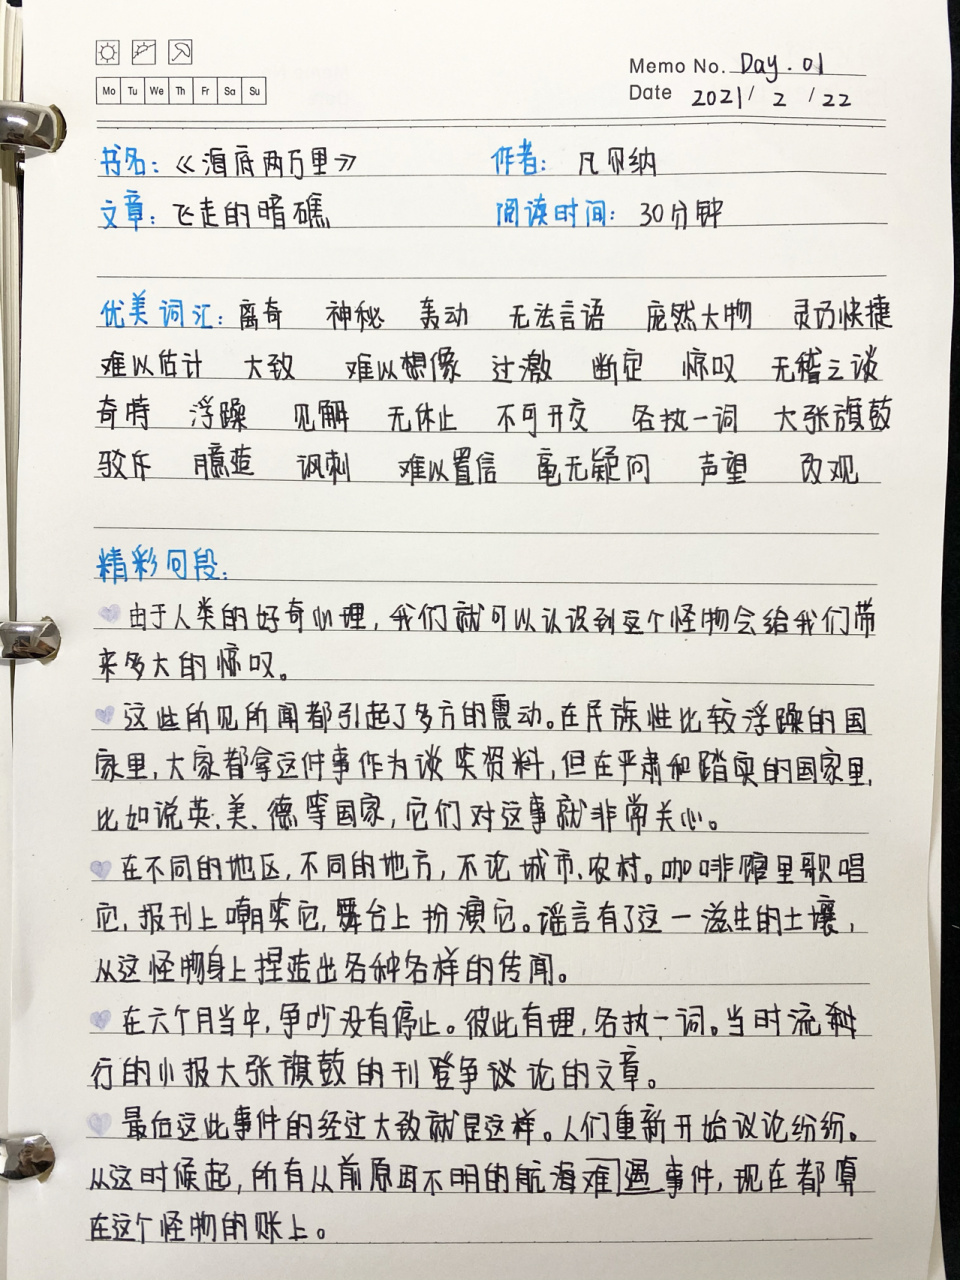 Memo No. Day. 01
Mo Tu We Th Fr Sa Su
Date 2021 / 2 / 22
书名：《海底两万里》 作者：凡尔纳
文章：飞走的暗礁 阅读时间：30分钟
优美词汇：离奇 神秘 轰动 无法言语 庞然大物 灵巧快捷
难以估计 大致 难以想像 过激 断定 惊叹 无稽之谈
奇特 浮躁 见解 无休止 不可开交 各执一词 大张旗鼓
驳斥 臆造 讽刺 难以置信 毫无疑问 声望 改观
精彩句段：
由于人类的好奇心理，我们就可以认识到这个怪物会给我们带
来多大的惊叹。
这些所见所闻都引起了多方的震动。在民族性比较浮躁的国
家里，大家都拿这件事作为谈笑资料，但在严肃和踏实的国家里，
比如说英、美、德等国家，它们对这事就非常关心。
在不同的地区，不同的地方，不论城市、农村。咖啡馆里歌唱
它，报刊上嘲笑它，舞台上扮演它。谣言有了这一滋生的土壤，
从这怪物身上捏造出各种各样的传闻。
在六个月当中，争吵没有停止。彼此有理，各执一词。当时流
行的小报大张旗鼓的刊登争议论的文章。
最后这些事件的经过大致就是这样。人们重新开始议论纷纷。
从这时候起，所有从前原因不明的航海难遇事件，现在都算
在这个怪物的账上。